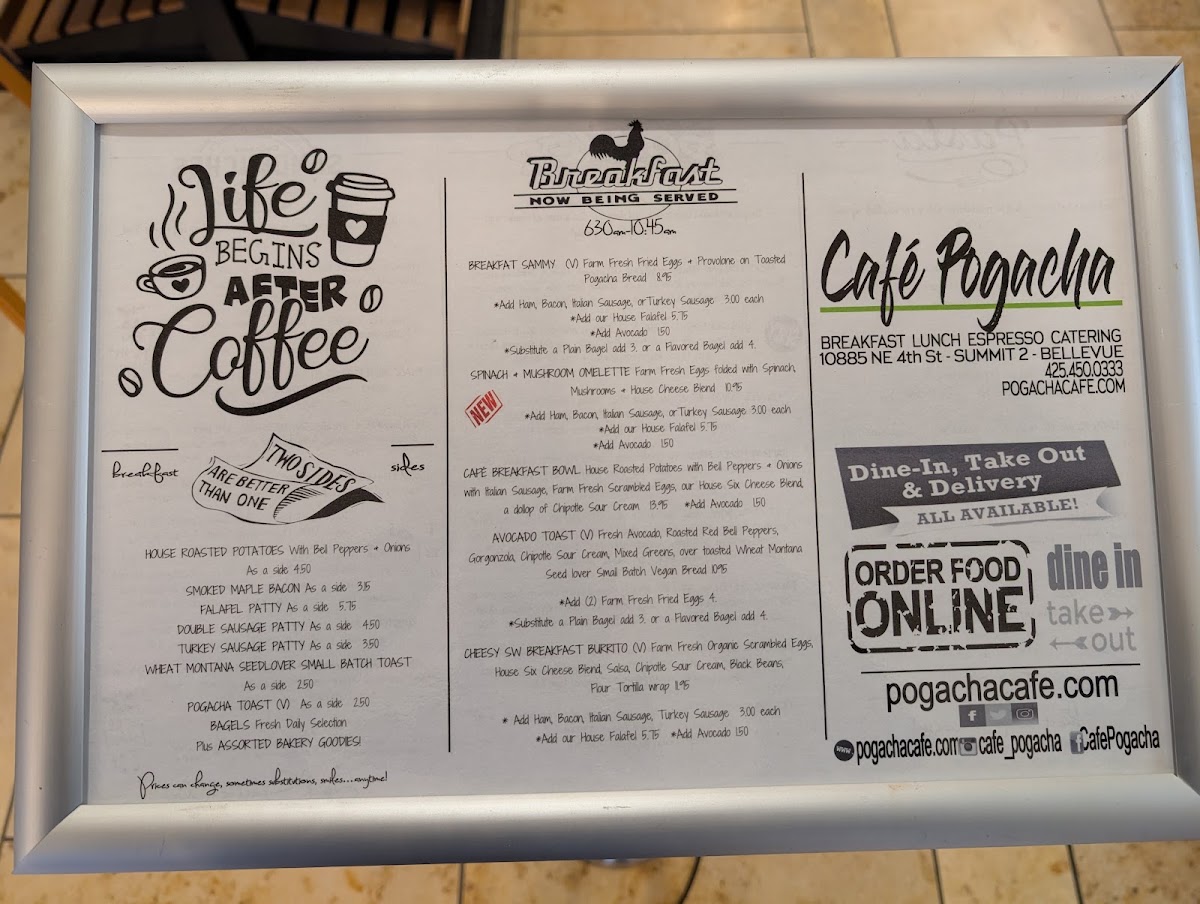 Life
BEGINS
AFTER
Coffee
breakfast
TWO SIDES
ARE BETTER
THAN ONE
sides
HOUSE ROASTED POTATOES With Bell Peppers & Onions
As a side 4.50
SMOKED MAPLE BACON As a side 3.15
FALAFEL PATTY As a side 5.75
DOUBLE SAUSAGE PATTY As a side 4.50
TURKEY SAUSAGE PATTY As a side 3.50
WHEAT MONTANA SEEDLOVER SMALL BATCH TOAST
As a side 2.50
POGACHA TOAST (V) As a side 2.50
BAGELS Fresh Daily Selection
Plus ASSORTED BAKERY GOODIES!
Prices can change, sometimes substitutions, smiles....anytime!
Breakfast
NOW BEING SERVED
630am-10:45am
BREAKFAT SAMMY (V) Farm Fresh Fried Eggs & Provolone on Toasted
Pogacha Bread 8.95
*Add Ham, Bacon, Italian Sausage, or Turkey Sausage 3.00 each
*Add our House Falafel 5.75
*Add Avocado 1.50
*Substitute a Plain Bagel add 3. or a Flavored Bagel add 4.
SPINACH & MUSHROOM OMELETTE Farm Fresh Eggs folded with Spinach,
Mushrooms & House Cheese Blend 10.95
NEW
*Add Ham, Bacon, Italian Sausage, or Turkey Sausage 3.00 each
*Add our House Falafel 5.75
*Add Avocado 1.50
CAFÉ BREAKFAST BOWL House Roasted Potatoes with Bell Peppers & Onions
with Italian Sausage, Farm Fresh Scrambled Eggs, our House Six Cheese Blend,
a dollop of Chipotle Sour Cream 13.95 *Add Avocado 1.50
AVOCADO TOAST (V) Fresh Avocado, Roasted Red Bell Peppers,
Gorgonzola, Chipotle Sour Cream, Mixed Greens, over toasted Wheat Montana
Seed lover Small Batch Vegan Bread 10.95
*Add (2) Farm Fresh Fried Eggs 4.
*Substitute a Plain Bagel add 3. or a Flavored Bagel add 4.
CHEESY SW BREAKFAST BURRITO (V) Farm Fresh Organic Scrambled Eggs,
House Six Cheese Blend, Salsa, Chipotle Sour Cream, Black Beans,
Flour Tortilla wrap 11.95
* Add Ham, Bacon, Italian Sausage, Turkey Sausage 3.00 each
*Add our House Falafel 5.75 *Add Avocado 1.50
Café Pogacha
BREAKFAST LUNCH ESPRESSO CATERING
10885 NE 4th St - SUMMIT 2 - BELLEVUE
425.450.0333
POGACHACAFE.COM
Dine-In, Take Out
& Delivery
ALL AVAILABLE!
ORDER FOOD
ONLINE
dine in
take
out
pogachacafe.com
www. pogachacafe.com cafe_pogacha CafePogacha